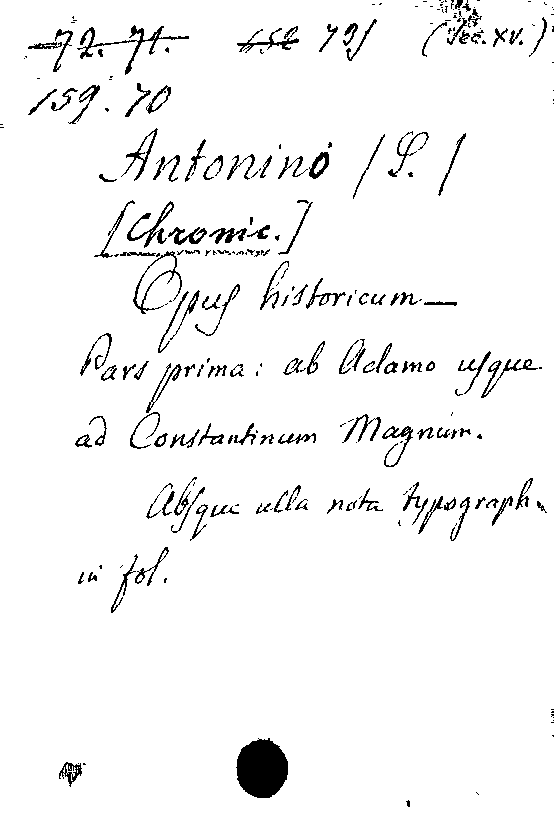 72. 71. 652 791 (Sec. XV.)
159. 70
Antonino /S./
[Chronic.]
Opus historicum—
Pars prima: ab Adamo usque
ad Constantinum Magnum.
Absque ulla nota typograph.
in fol.